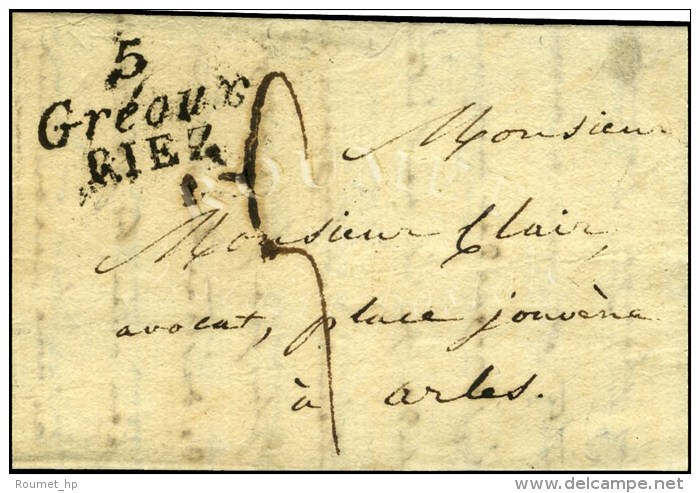 5
Gréoux
RIEZ
Monsieur
Monsieur Clair,
avocat, place jouvène
à arles.
ROUMET
Roumet_hp
delcampe.net